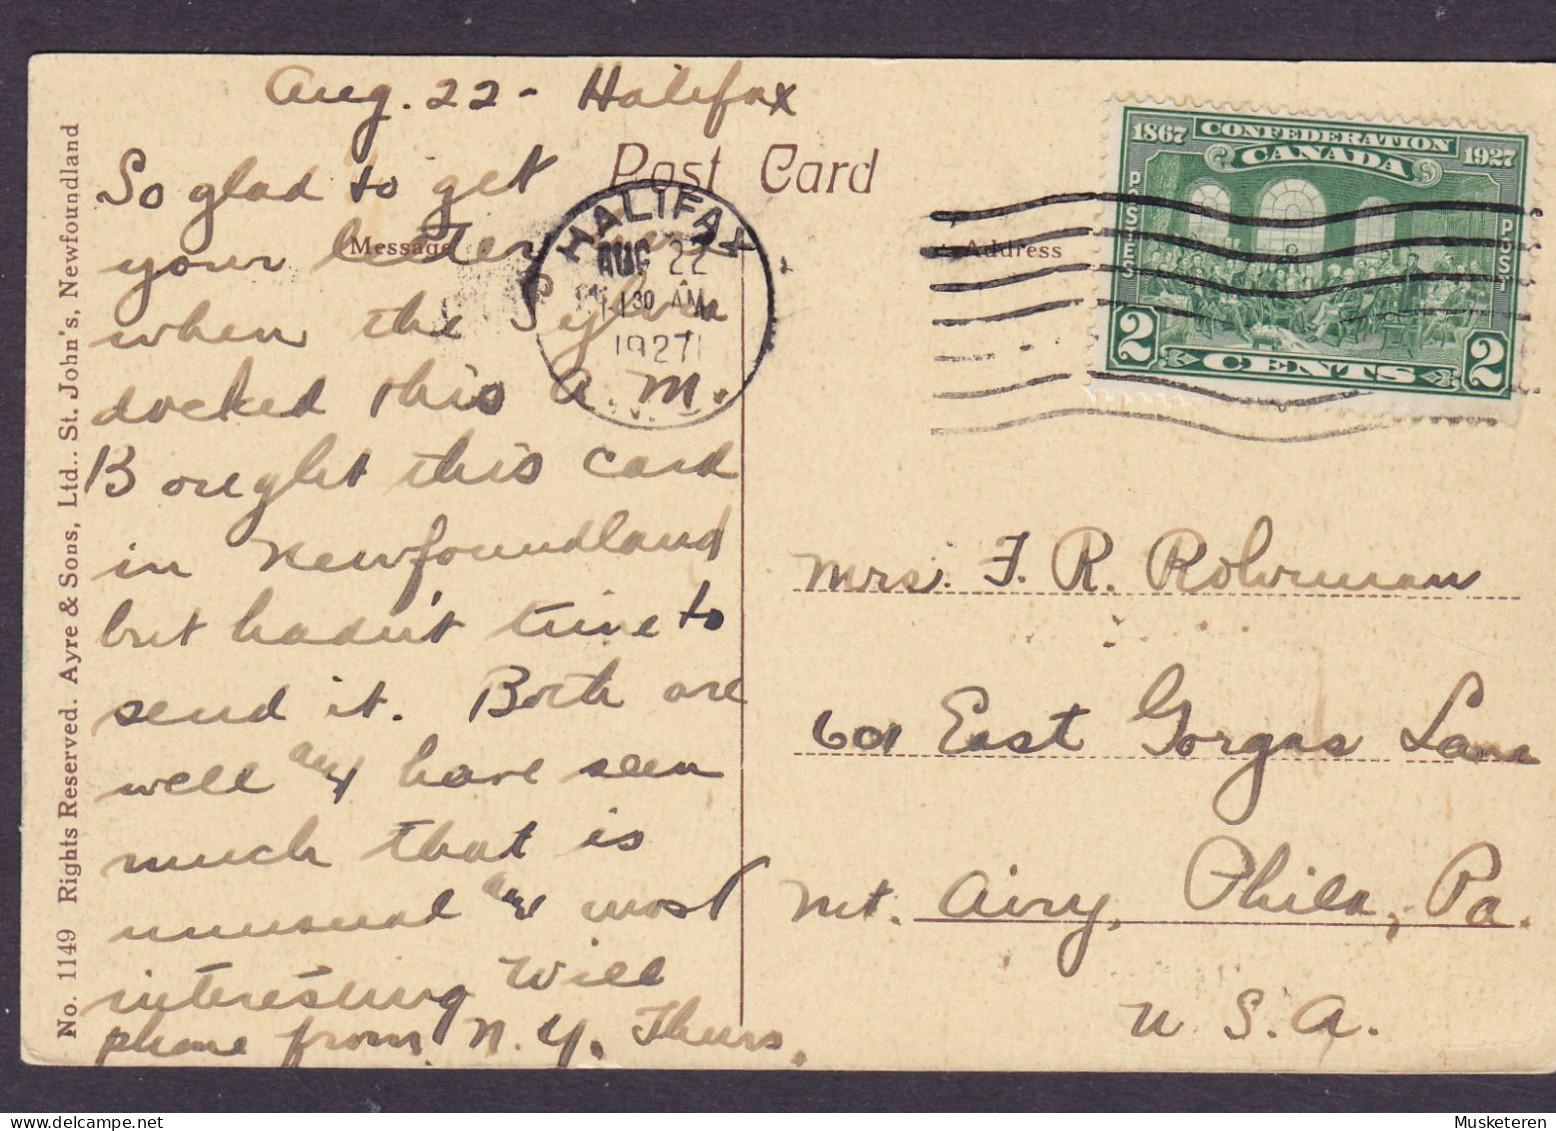 Aug. 22 - Halifax
Post Card
Message
Address
So glad to get
your letter
when the Sylvia
docked this A.M.
Bought this card
in Newfoundland
but hadn't time to
send it. Both are
well and have seen
much that is
unusual and most
interesting Will
phone from N.Y. Thurs.
HALIFAX
AUG 22
11 30 AM
1927
N.S.
1867 CONFEDERATION 1927
CANADA
POSTES
POST
2 CENTS 2
Mrs. F. R. Rohrman
601 East Gorgas Lane
Mt. Airy, Phila, Pa.
U.S.A.
No. 1149 Rights Reserved. Ayre & Sons, Ltd.. St. John's, Newfoundland
Musketeren